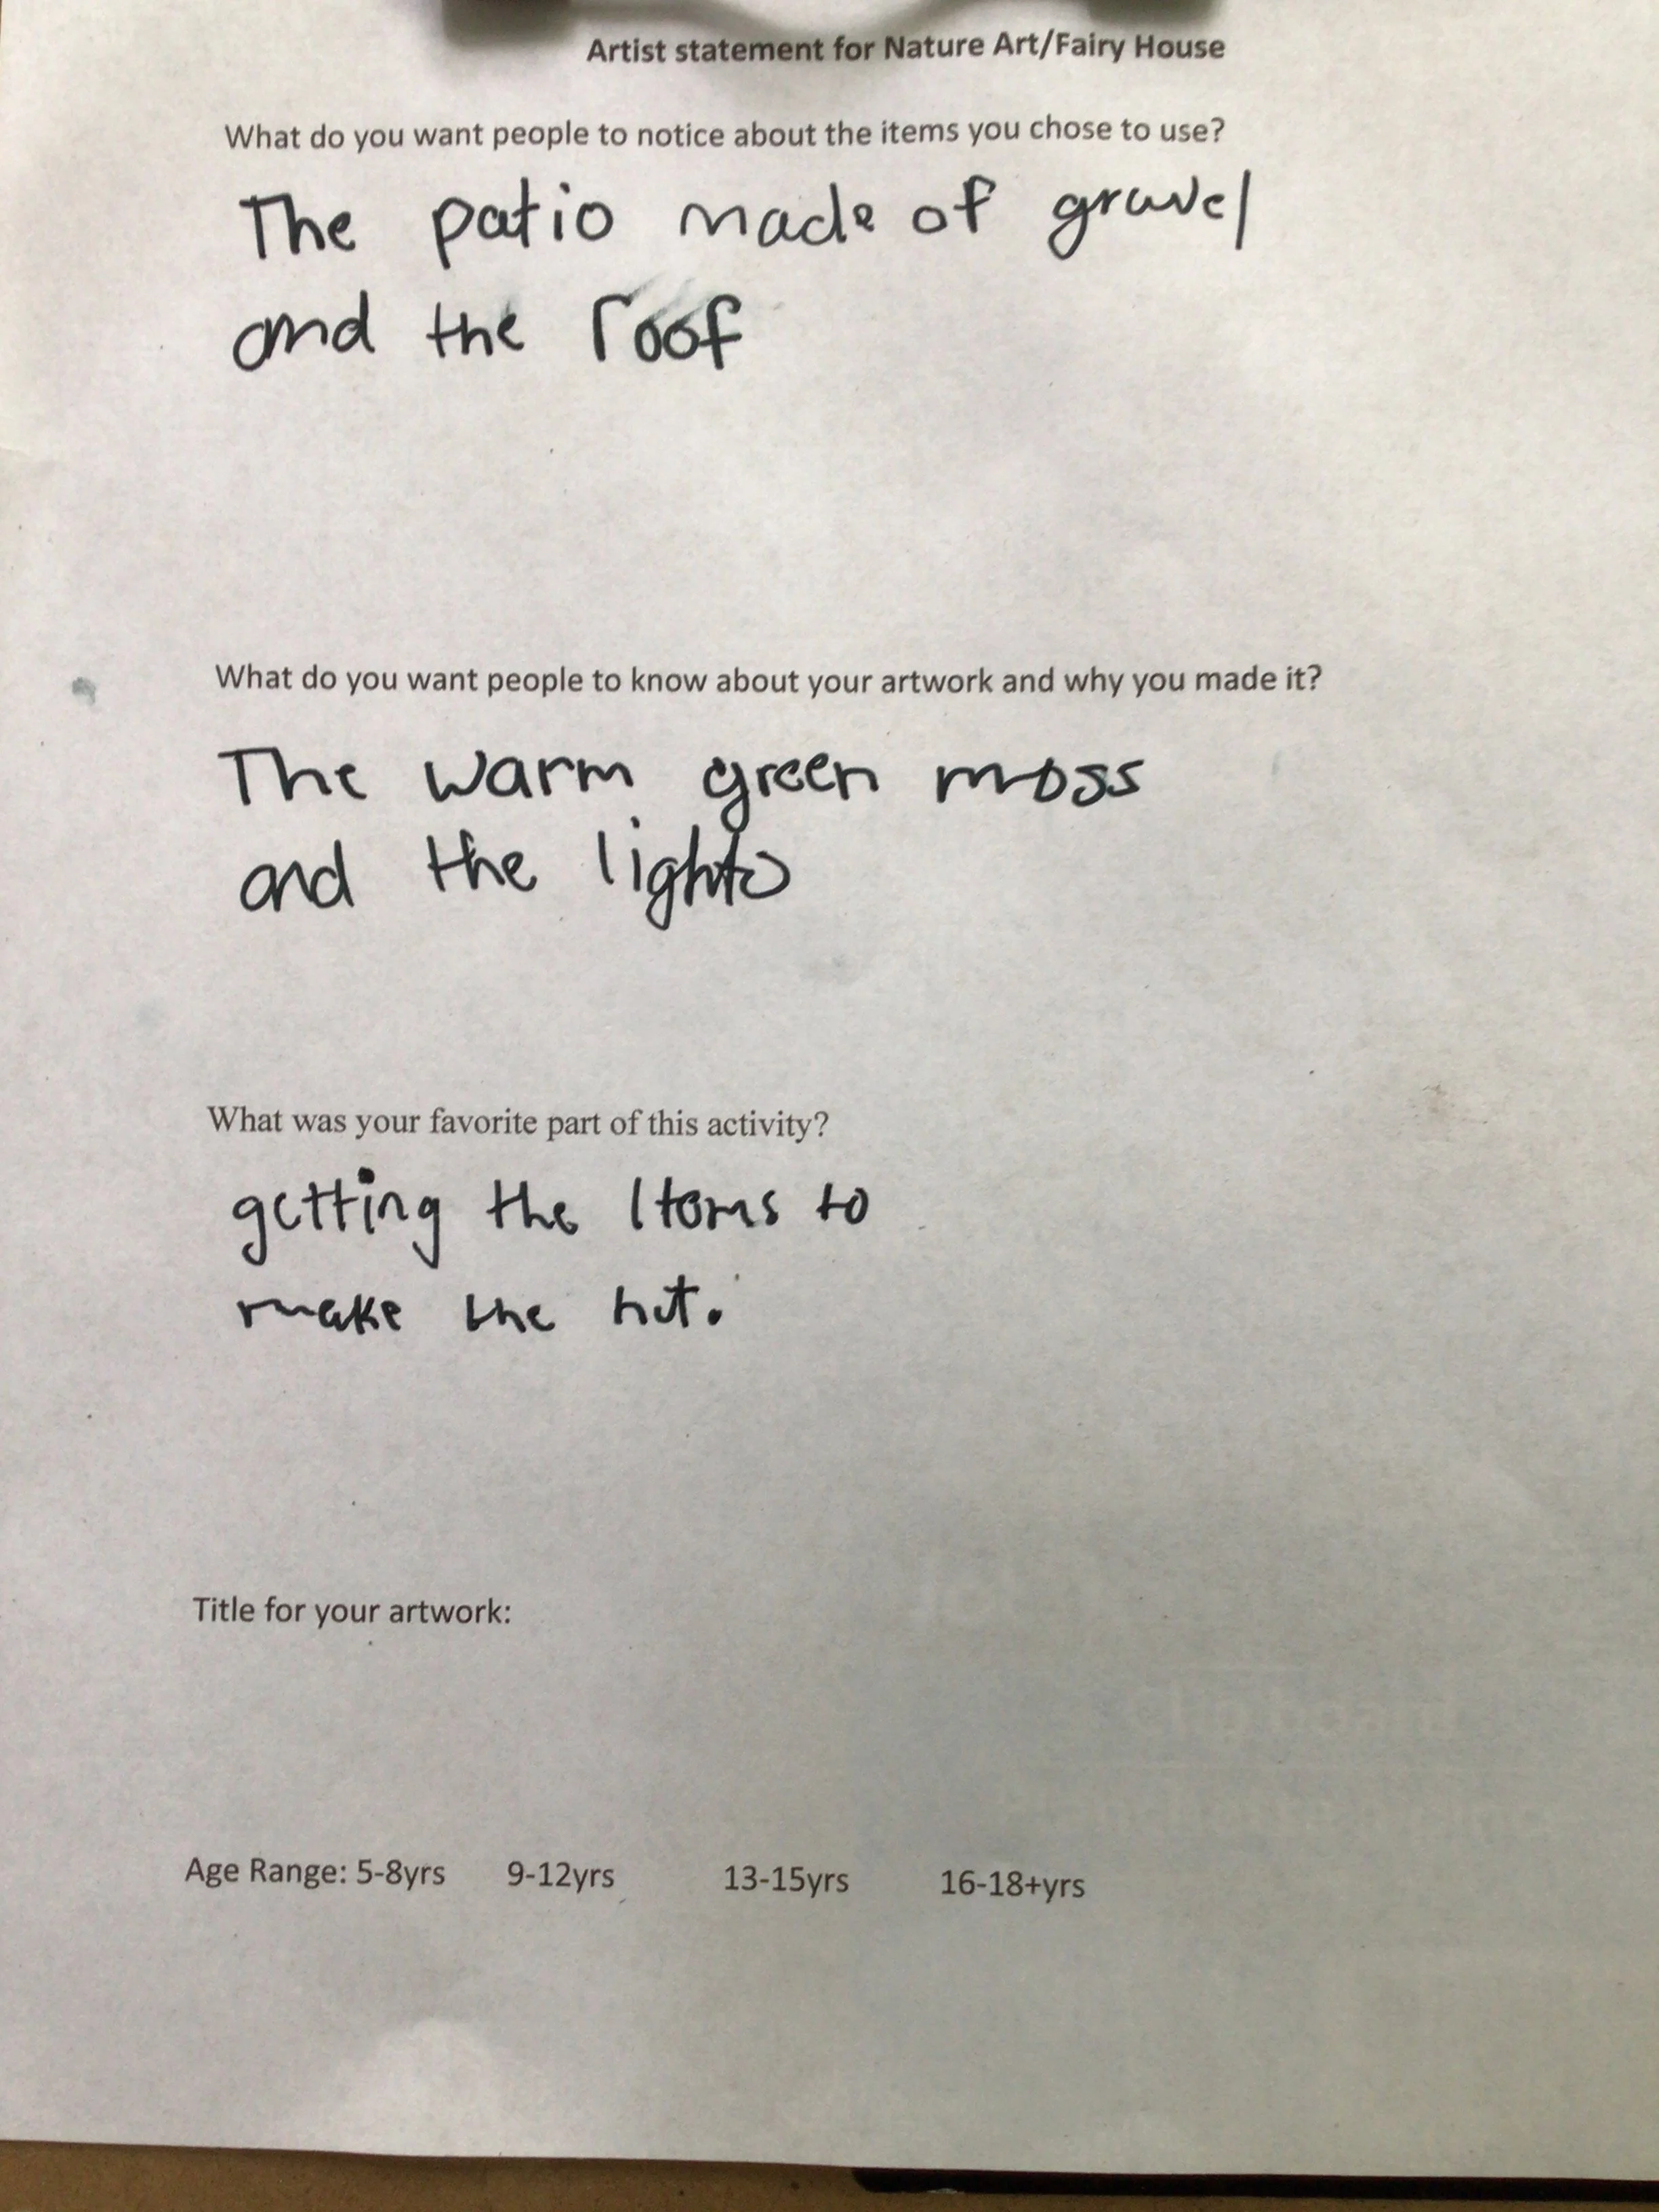 Artist statement for Nature Art/Fairy House
What do you want people to notice about the items you chose to use?
The patio made of gravel
and the roof
What do you want people to know about your artwork and why you made it?
The warm green moss
and the lights
What was your favorite part of this activity?
getting the Items to
make the hut.
Title for your artwork:
Clip board
Age Range: 5-8yrs 9-12yrs 13-15yrs 16-18+yrs